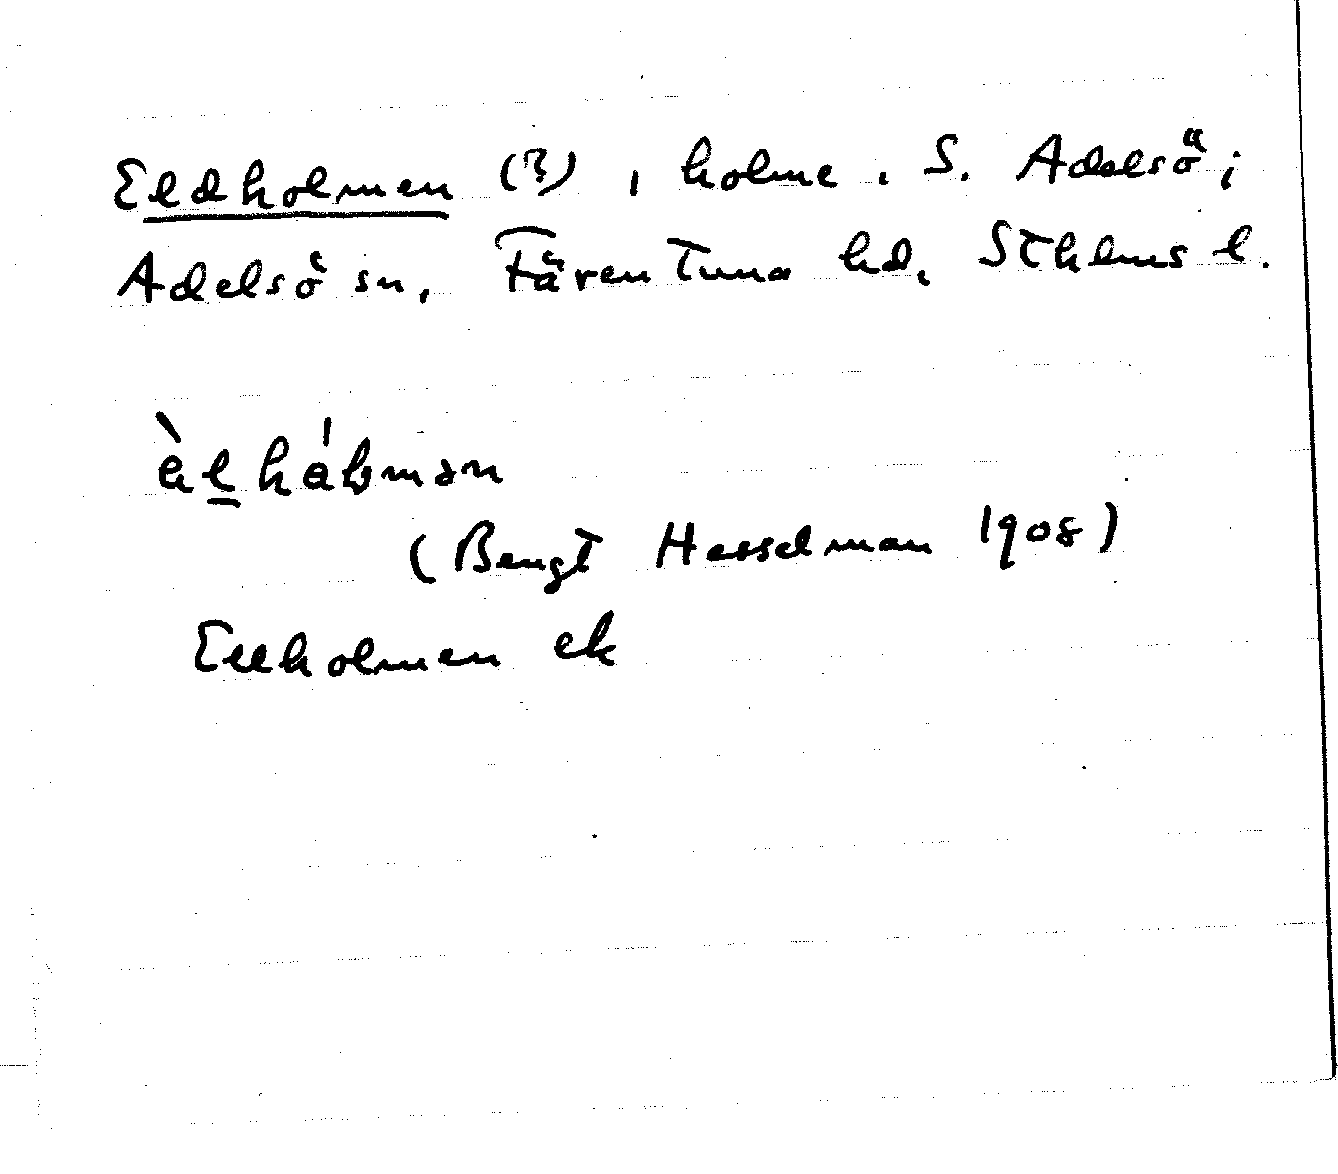 Eldholmen (?), holme i S. Adelsö;
Adelsö sn, Färentuna hd, Sthlms l.
(Bengt Hesselman 1908)
Ellholmen ek